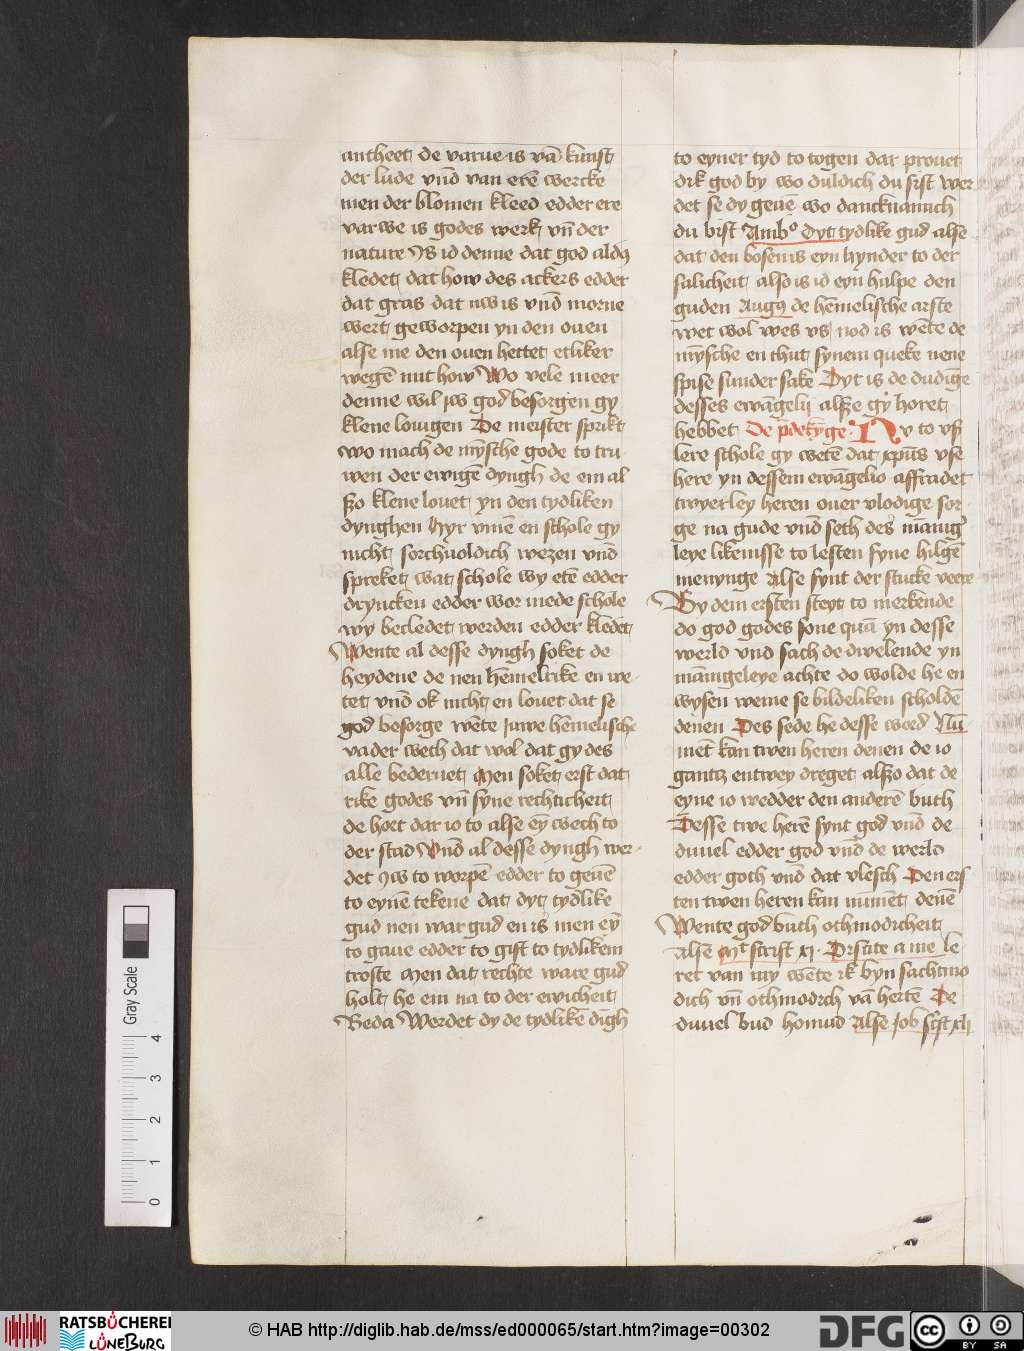 antheet de varue is vā kunst
der lude vnd̄ van erē wercke
men der blomen kleed edder ere
varwe is godes werk vn̄ der
nature Is id denne dat god aldꝯ
kledet dat how des ackers edder
dat gras dat nw is vnd̄ morne
wert geworpen yn den ouen
alse me den ouen hettet etliker
wegē mit how Wo vele meer
denne wil iw god besorgen gy
klene louigen De meister sprikt
wo mach de mȳsche gode to tru
wen der ewigē dyngh de em al
szo klene louet yn den tydliken
dynghen Hyr vmē en schole gy
nicht sorchuoldich wezen vnd̄
spreket wat schole wy etē edder
dryncken edder wor mede schole
wy becledet werden edder kledet
Wente al desse dyngh soket de
heydene de nen hēmelrike en we
tet vnd̄ ok nicht en louet dat se
god besorge wēte juwe hēmelische
vader wech dat wol dat gy des
alle bederuet Men soket erst dat
rike godes vn̄ syne rechticheit
de hort dar io to alse eȳ wech to
der stad Vnd̄ al desse dyngh wer
det yw to worpē edder to geuē
to eynē tekene dat dyt tydlike
gud nen war gud en is men eȳ
to gaue edder to gift to tydlikem
troste Men dat rechte ware gud
holt he em na to der ewicheit
Beda Werdet dy de tydlikē dīgh
to eyner tyd to togen dar prouet
dik god by wo duldich du sist wer
det se dy geuē wo dancknamich
du bist Ambꝰ Dyt tydlike gud alse
dat den bosen is eyn hynder to der
salicheit also is id eyn hulpe den
guden Augꝯ de hēmelische arste
wet wol wes vs nod is wēte de
mȳsche en thut synem queke nene
spise sunder sake Dyt is de dudīge
desses ewāgelij alsze gy horet
hebbet De p̄detȳge Nv to vs
lere schole gy wetē dat xp̄us vse
here yn dessem ewāgelio affradet
twyerley heren ouer vlodige sor
ge na gude vnd̄ seth des mānig
leye likenisse to lesten syne hilgē
menynge Alse synt der stucke veere
By dem ersten steyt to merkende
do god godes sone quā yn desse
werld vnd sach de dwelende yn
mānigeleye achte do wolde he en
wysen weme se bildeliken scholdē
denen Des sede he desse word Nū
met kan twen heren denen de io
gantz entwey dreget alszo dat de
eyne io wedder den anderē buth
Desse twe herē synt god vnd̄ de
duuel edder god vnd̄ de werld
edder goth vnd̄ dat vlesch Den ers
ten twen heren kan nūmēt denē
Wente god buth othmodicheit
Alsē Mᵗ script xj Discite a me le
ret van my wēte ik byn sachtmo
dich vn̄ othmodich vā hertē De
duuel bud homud Alse Job sc͛pt xlj
0 1 2 3 4 Gray Scale
RATSBÜCHEREI LÜNEBURG
© HAB http://diglib.hab.de/mss/ed000065/start.htm?image=00302
DFG
cc BY SA